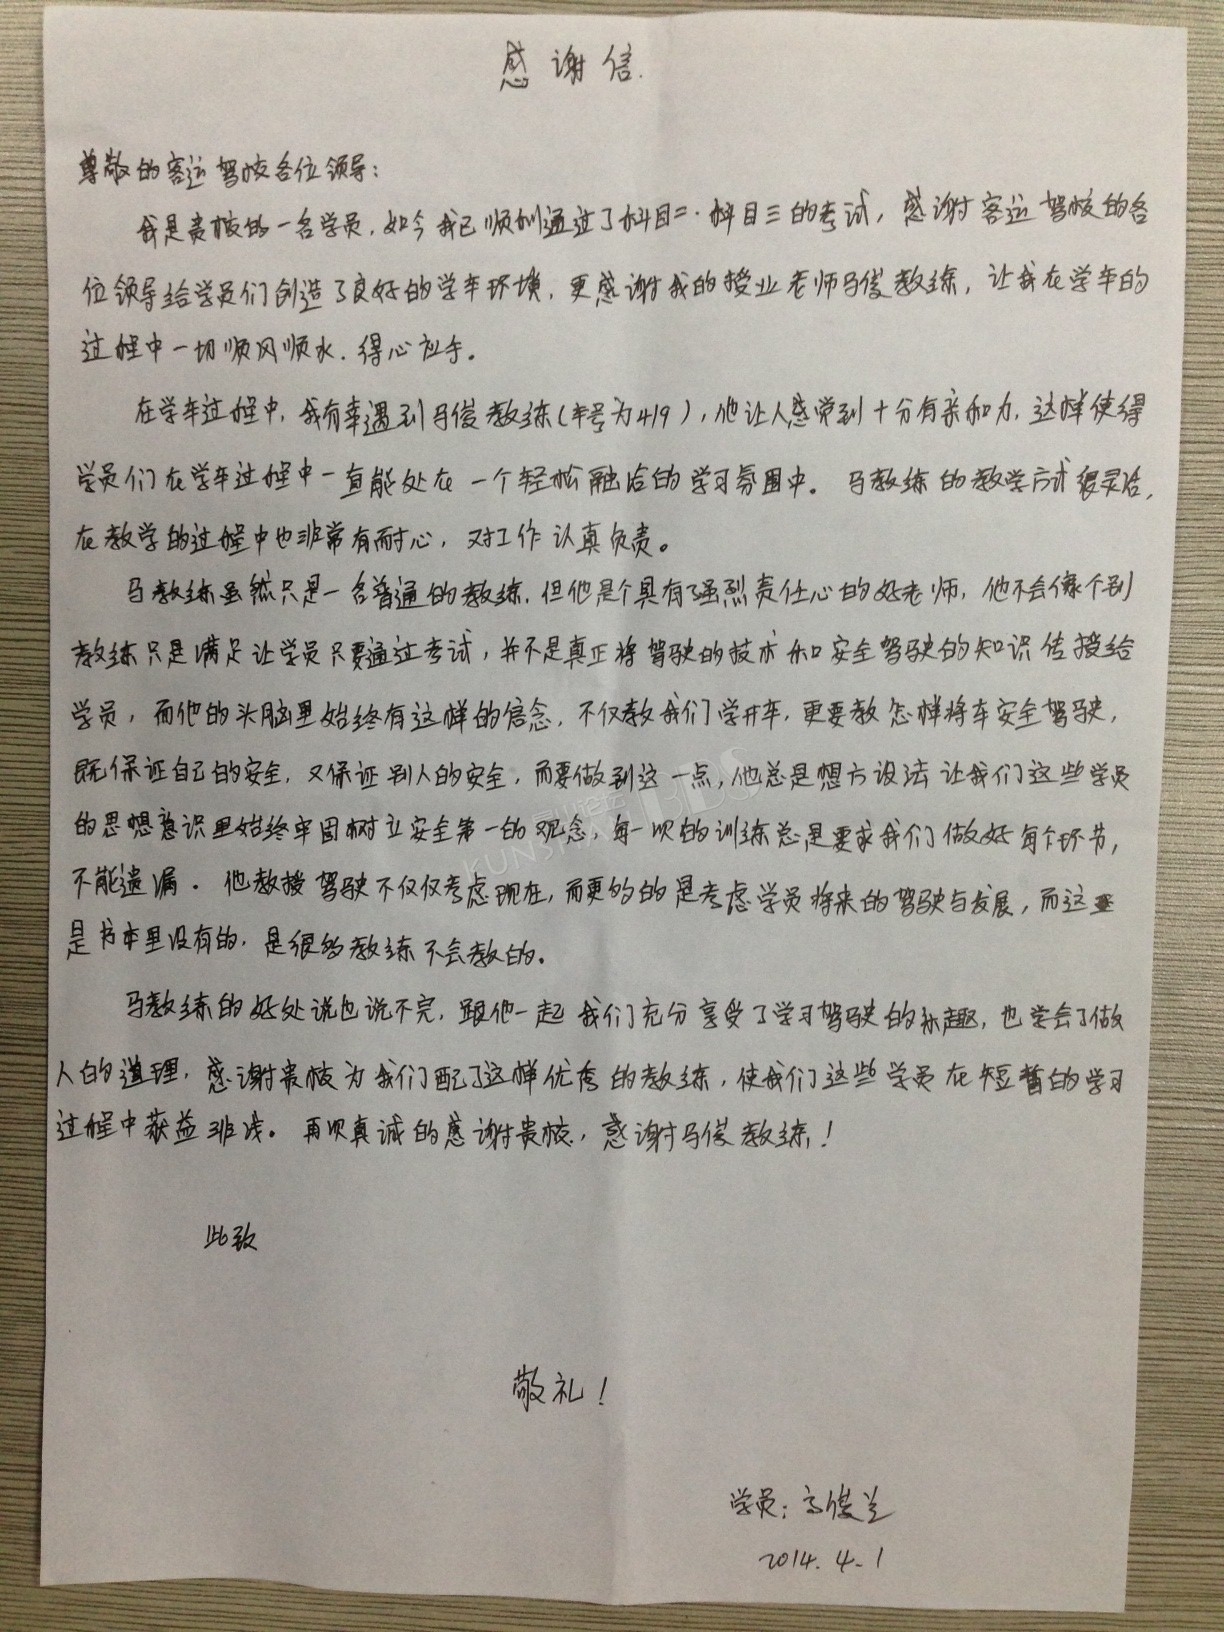 感谢信.
尊敬的客运驾校各位领导:
我是贵校的一名学员,如今我已顺利通过了科目二、科目三的考试,感谢客运驾校的各
位领导给学员们创造了良好的学车环境,更感谢我的授业老师马俊教练,让我在学车的
过程中一切顺风顺水、得心应手。
在学车过程中,我有幸遇到马俊教练(车号为419),他让人感觉到十分有亲和力,这样使得
学员们在学车过程中一直能处在一个轻松融洽的学习氛围中。马教练的教学方式很灵活,
在教学的过程中也非常有耐心,对工作认真负责。
马教练虽然只是一名普通的教练,但他是个具有强烈责任心的好老师,他不会像个别
教练只是满足让学员只要通过考试,并不是真正将驾驶的技术和安全驾驶的知识传授给
学员,而他的头脑里始终有这样的信念,不仅教我们学开车,更要教怎样将车安全驾驶,
既保证自己的安全,又保证别人的安全,而要做到这一点,他总是想方设法让我们这些学员
的思想意识里始终牢固树立安全第一的观念,每一次的训练总是要求我们做好每个环节,
不能遗漏。他教授驾驶不仅仅考虑现在,而更多的是考虑学员将来的驾驶与发展,而这
是书本里没有的,是很多教练不会教的。
马教练的好处说也说不完,跟他一起我们充分享受了学习驾驶的乐趣,也学会了做
人的道理,感谢贵校为我们配了这样优秀的教练,使我们这些学员在短暂的学习
过程中获益非浅。再次真诚的感谢贵校,感谢马俊教练!
此致
敬礼!
学员:高俊兰
2014.4.1
KUNSHAN BBS